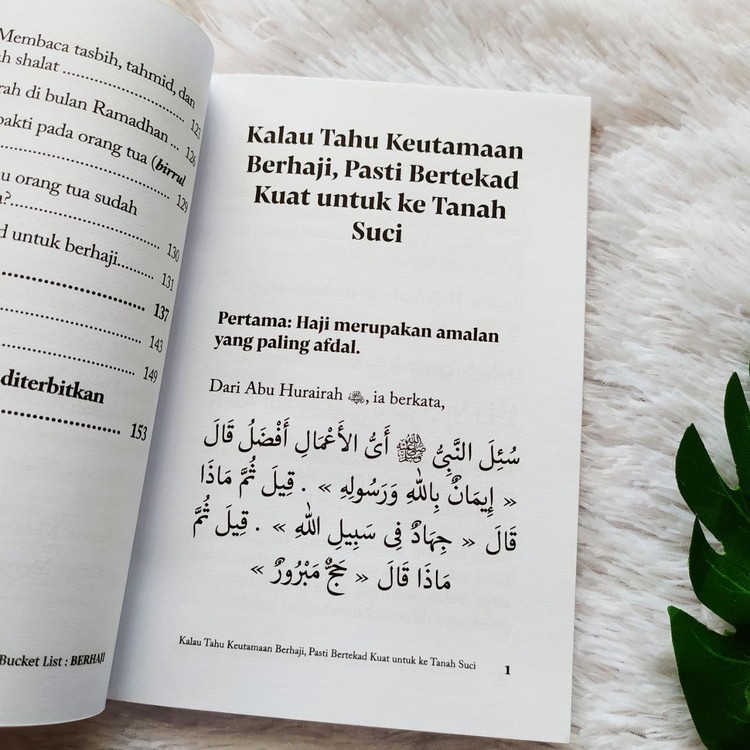 Membaca tasbih, tahmid, dan
h shalat .......... 123
rah di bulan Ramadhan ... 126
bakti pada orang tua (birrul
.......... 129
u orang tua sudah
a?.......... 130
d untuk berhaji....... 131
.......... 137
.......... 143
.......... 149
diterbitkan
.......... 153
Bucket List : BERHAJI
Kalau Tahu Keutamaan
Berhaji, Pasti Bertekad
Kuat untuk ke Tanah
Suci
Pertama: Haji merupakan amalan
yang paling afdal.
Dari Abu Hurairah, ia berkata,
سُئِلَ النَّبِىُّ ﷺ أَىُّ الأَعْمَالِ أَفْضَلُ قَالَ
« إِيمَانٌ بِاللهِ وَرَسُولِهِ » . قِيلَ ثُمَّ مَاذَا
قَالَ « جِهَادٌ فِى سَبِيلِ اللهِ » . قِيلَ ثُمَّ
مَاذَا قَالَ « حَجٌّ مَبْرُورٌ »
Kalau Tahu Keutamaan Berhaji, Pasti Bertekad Kuat untuk ke Tanah Suci 1